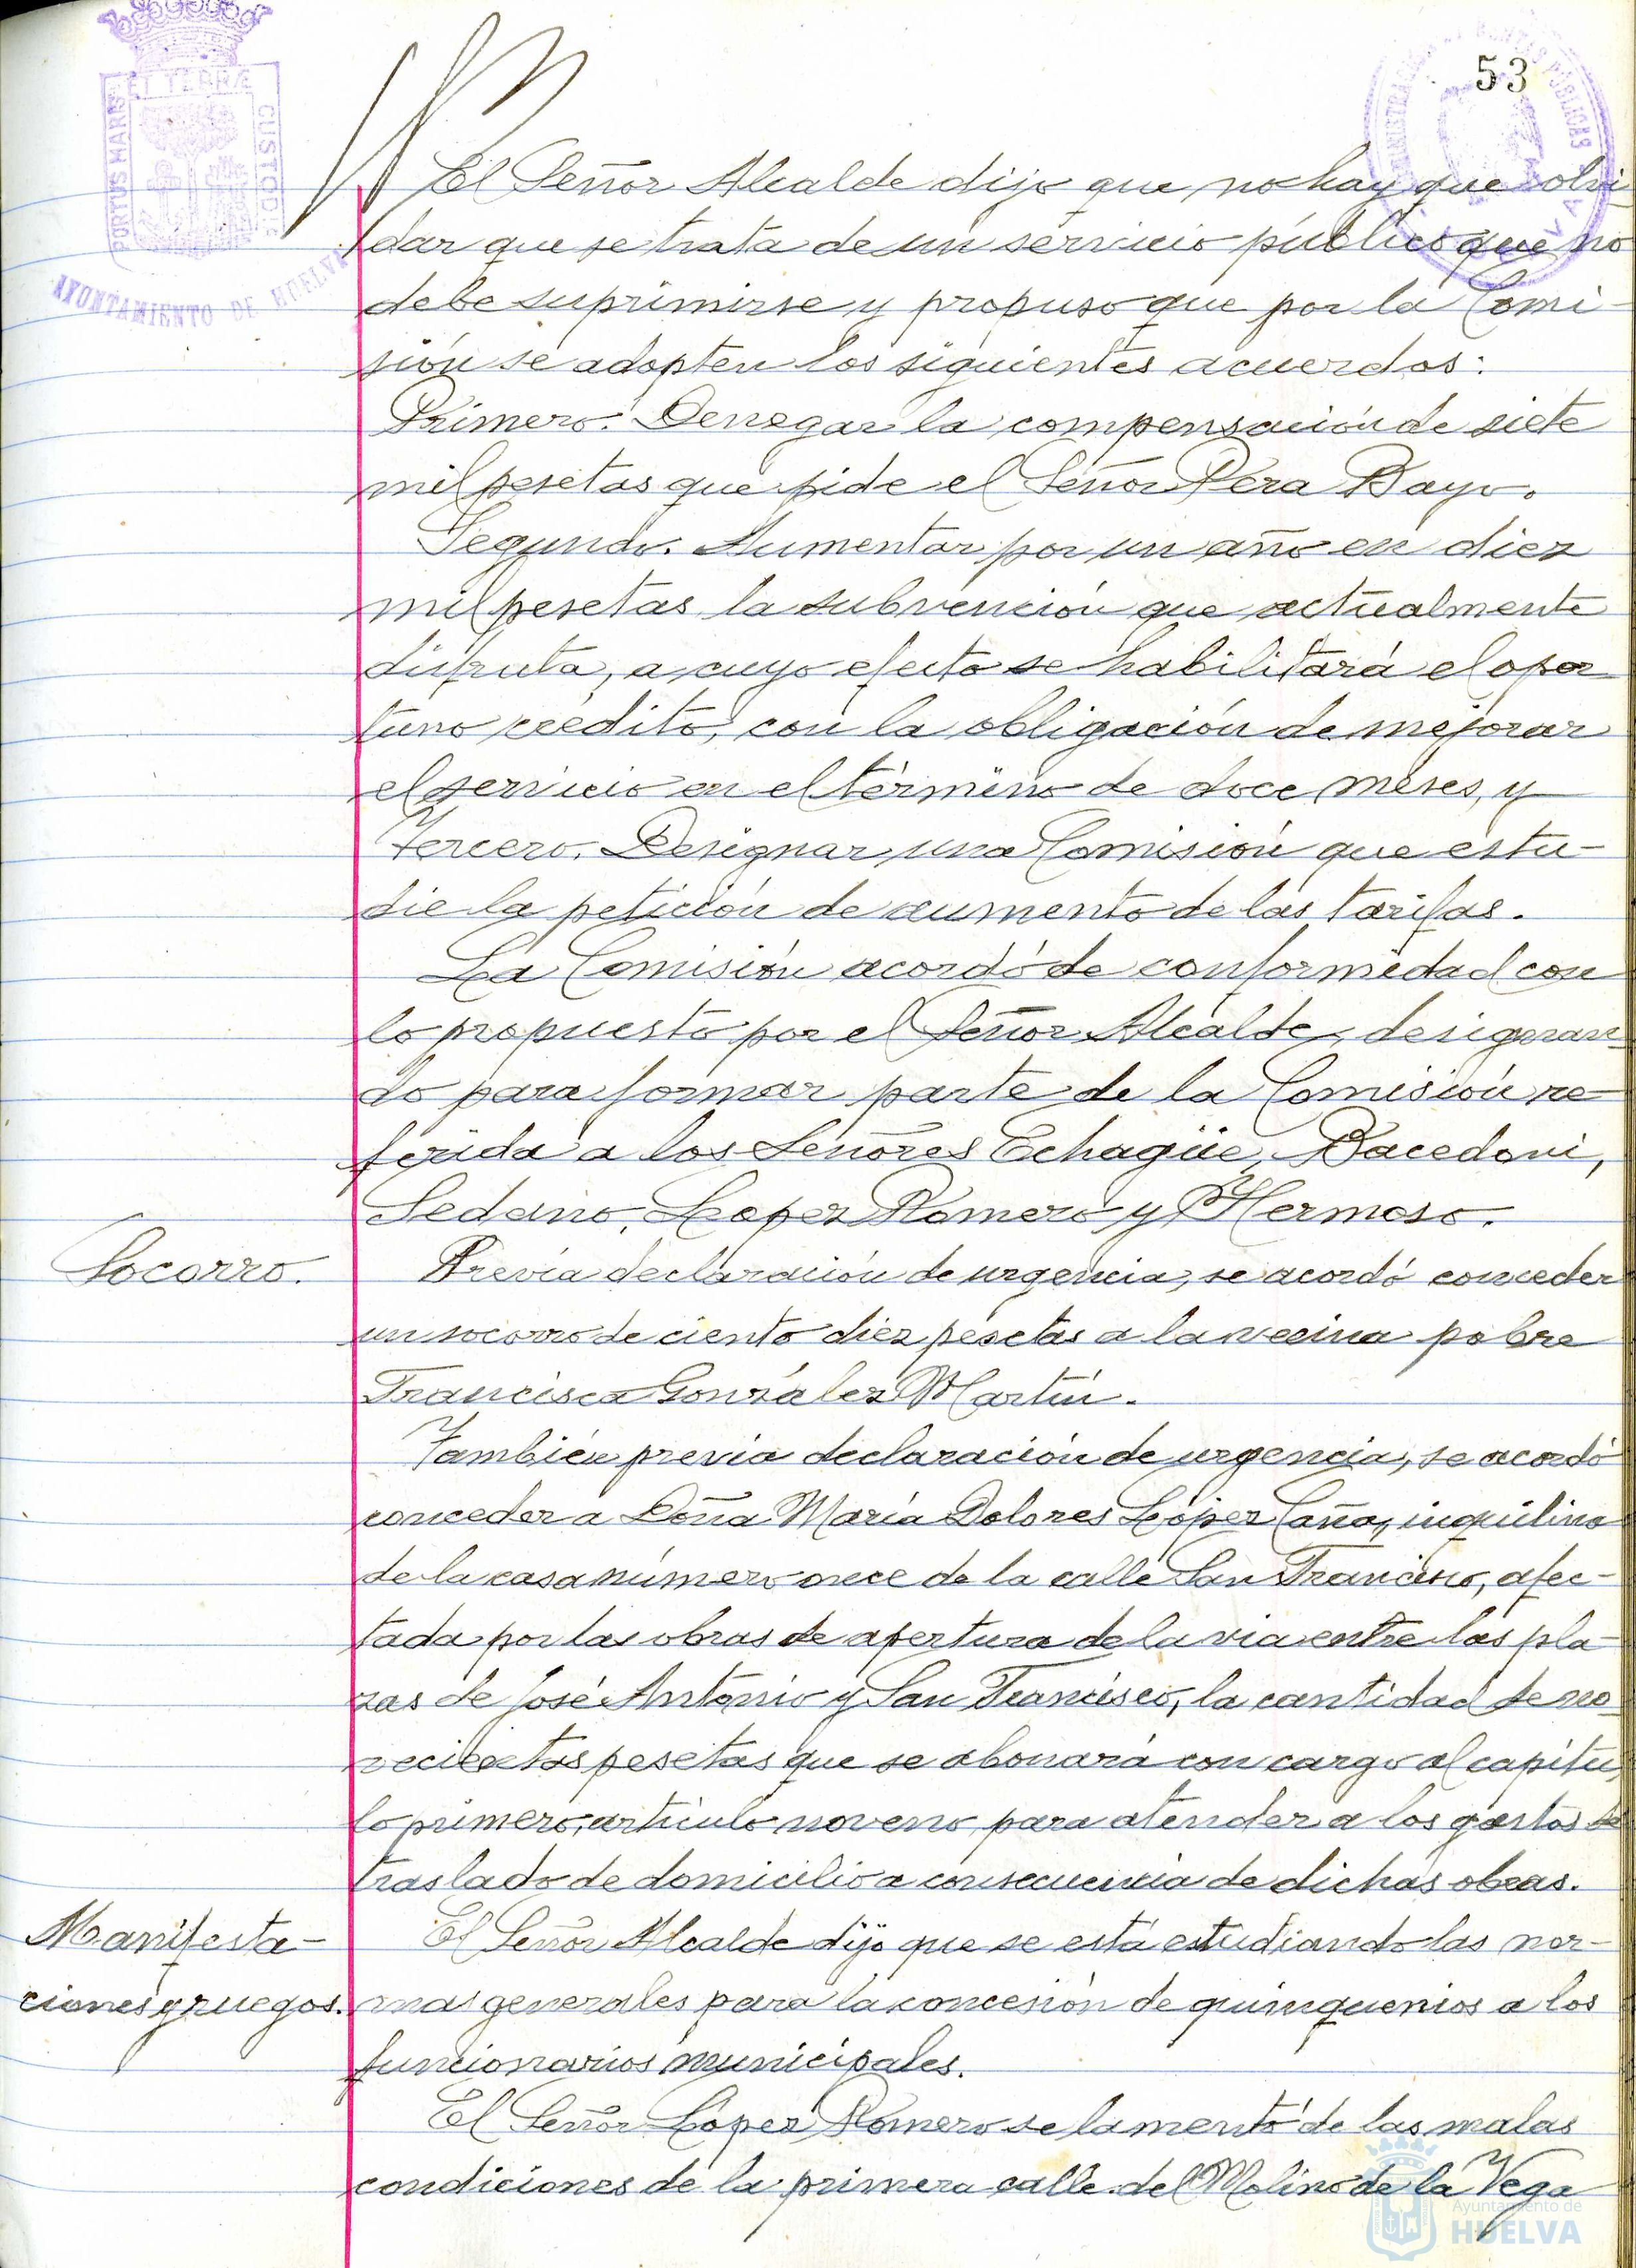 53
PORTUS MARIS ET TERRÆ CUSTODIA
AYUNTAMIENTO DE HUELVA
El Señor Alcalde dijo que no hay que olvi-
dar que se trata de un servicio público que no
debe suprimirse y propuso que por la Comi-
sión se adopten los siguientes acuerdos:
Primero. Denegar la compensación de siete
mil pesetas que pide el Señor Pera Bayo.
Segundo. Aumentar por un año en diez
mil pesetas la subvención que actualmente
disfruta, a cuyo efecto se habilitará el opor-
tuno crédito, con la obligación de mejorar
el servicio en el término de doce meses, y
Tercero. Designar una Comisión que estu-
die la petición de aumento de las tarifas.
La Comisión acordó de conformidad con
lo propuesto por el Señor Alcalde, designan-
do para formar parte de la Comisión re-
ferida a los Señores Echagüe, Bacedoni,
Sedano, Lopez Romero y Hermoso.
Socorro. Previa declaración de urgencia, se acordó conceder
un socorro de ciento diez pesetas a la vecina pobre
Francisca González Martín.
También previa declaración de urgencia, se acordó
conceder a Doña María Dolores López Caña, inquilina
de la casa número once de la calle San Francisco, afec-
tada por las obras de apertura de la via entre las pla-
zas de José Antonio y San Francisco, la cantidad de no-
vecientas pesetas que se abonará con cargo al capítu-
lo primero, artículo noveno, para atender a los gastos de
traslado de domicilio a consecuencia de dichas obras.
Manifesta- El Señor Alcalde dijo que se está estudiando las nor-
ciones y ruegos. mas generales para la concesión de quinquenios a los
funcionarios municipales.
El Señor López Romero se lamentó de las malas
condiciones de la primera calle del Molino de la Vega
Ayuntamiento de
HUELVA